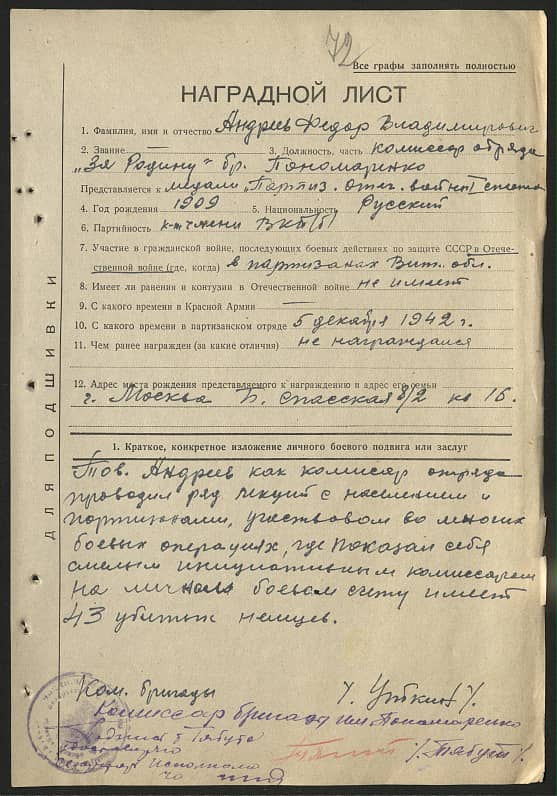 72
Все графы заполнять полностью
НАГРАДНОЙ ЛИСТ
1. Фамилия, имя и отчество Андреев Федор Владимирович
2. Звание — 3. Должность, часть комиссар отряда
"За Родину" бр. Пономаренко
Представляется к медали "Партиз. отеч. войны I степени
4. Год рождения 1909 5. Национальность Русский
6. Партийность к-т члени ВКП(б)
7. Участие в гражданской войне, последующих боевых действиях по защите СССР в Отече-
ственной войне (где, когда) в партизанах Вит. обл.
8. Имеет ли ранения и контузии в Отечественной войне не имеет
9. С какого времени в Красной Армии —
10. С какого времени в партизанском отряде 5 декабря 1942 г.
11. Чем ранее награжден (за какие отличия) не награждался
12. Адрес места рождения представляемого к награждению и адрес его семьи
г. Москва Б. Спасская 8/2 кв 16.
ДЛЯ ПОДШИВКИ
1. Краткое, конкретное изложение личного боевого подвига или заслуг
Тов. Андреев как комисар отряда
проводил ряд лекций с населением и
партизанами, участвовал во многих
боевых операциях, где показал себя
смелым инициативным комиссаром
на личном боевом счету имеет
43 убитых немцев.
Ком. бригады /. Уткин /.
Комиссар бригады им. Пономаренко
/. Тябут /.